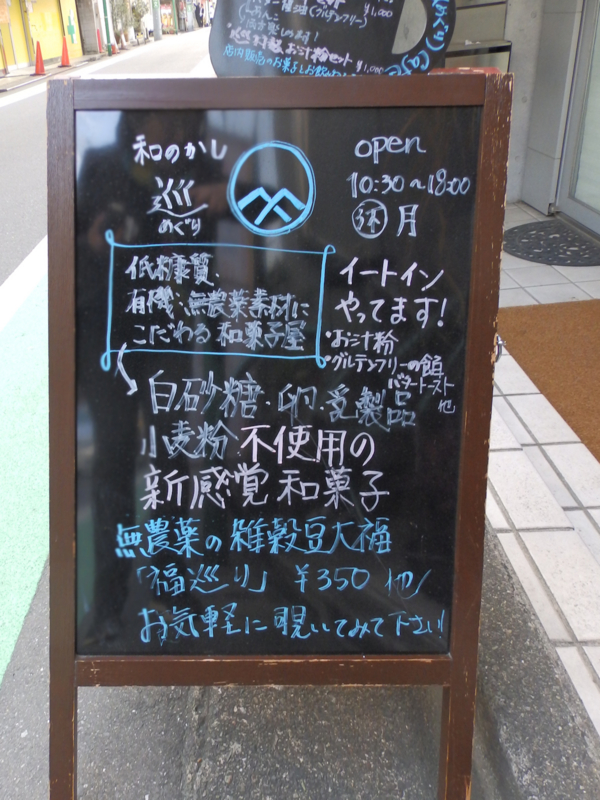 ¥1,000
(グルテンフリー)
お汁粉セット ¥1,000
Cafe
和のかし
巡
めぐり
open
10:30〜18:00
休 月
低糖質、
有機・無農薬素材に
こだわる和菓子屋
イートイン
やってます!
・お汁粉
・グルテンフリーの餡
バタートースト
他
白砂糖・卵・乳製品
小麦粉 不使用の
新感覚 和菓子
無農薬の雑穀豆大福
「福巡り」 ¥350 他/
お気軽に覗いてみて下さい